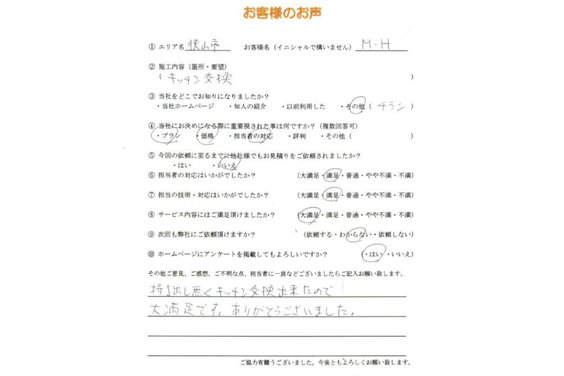 お客様のお声
① エリア名 狭山市 お客様名（イニシャルで構いません） M・H
② 施工内容（箇所・要望）
（ キッチン交換 ）
③ 当社をどこでお知りになりましたか？
・当社ホームページ ・知人の紹介 ・以前利用した ・その他（ チラシ ）
④ 当社にお決めになる際に重要視された事は何ですか？（複数回答可）
・プラン ・価格 ・担当者の対応 ・評判 ・その他（ ）
⑤ 今回の依頼に至るまでに他社様でもお見積りをご依頼されましたか？
・はい ・いいえ
⑥ 担当者の対応はいかがでしたか？ （大満足・満足・普通・やや不満・不満）
⑦ 担当の技術・対応はいかがでしたか？ （大満足・満足・普通・やや不満・不満）
⑧ サービス内容にはご満足頂けましたか？ （大満足・満足・普通・やや不満・不満）
⑨ 次回も弊社にご依頼頂けますか？ （依頼する・わからない・依頼しない）
⑩ ホームページにアンケートを掲載してもよろしいですか？ （・はい・いいえ）
その他ご意見、ご感想、ご不明な点、担当者に一波などございましたらご記入お願い致します。
持ち出し無くキッチン交換出来たので
大満足です。ありがとうございました。
ご協力有難うございました。今後ともよろしくお願い致します。